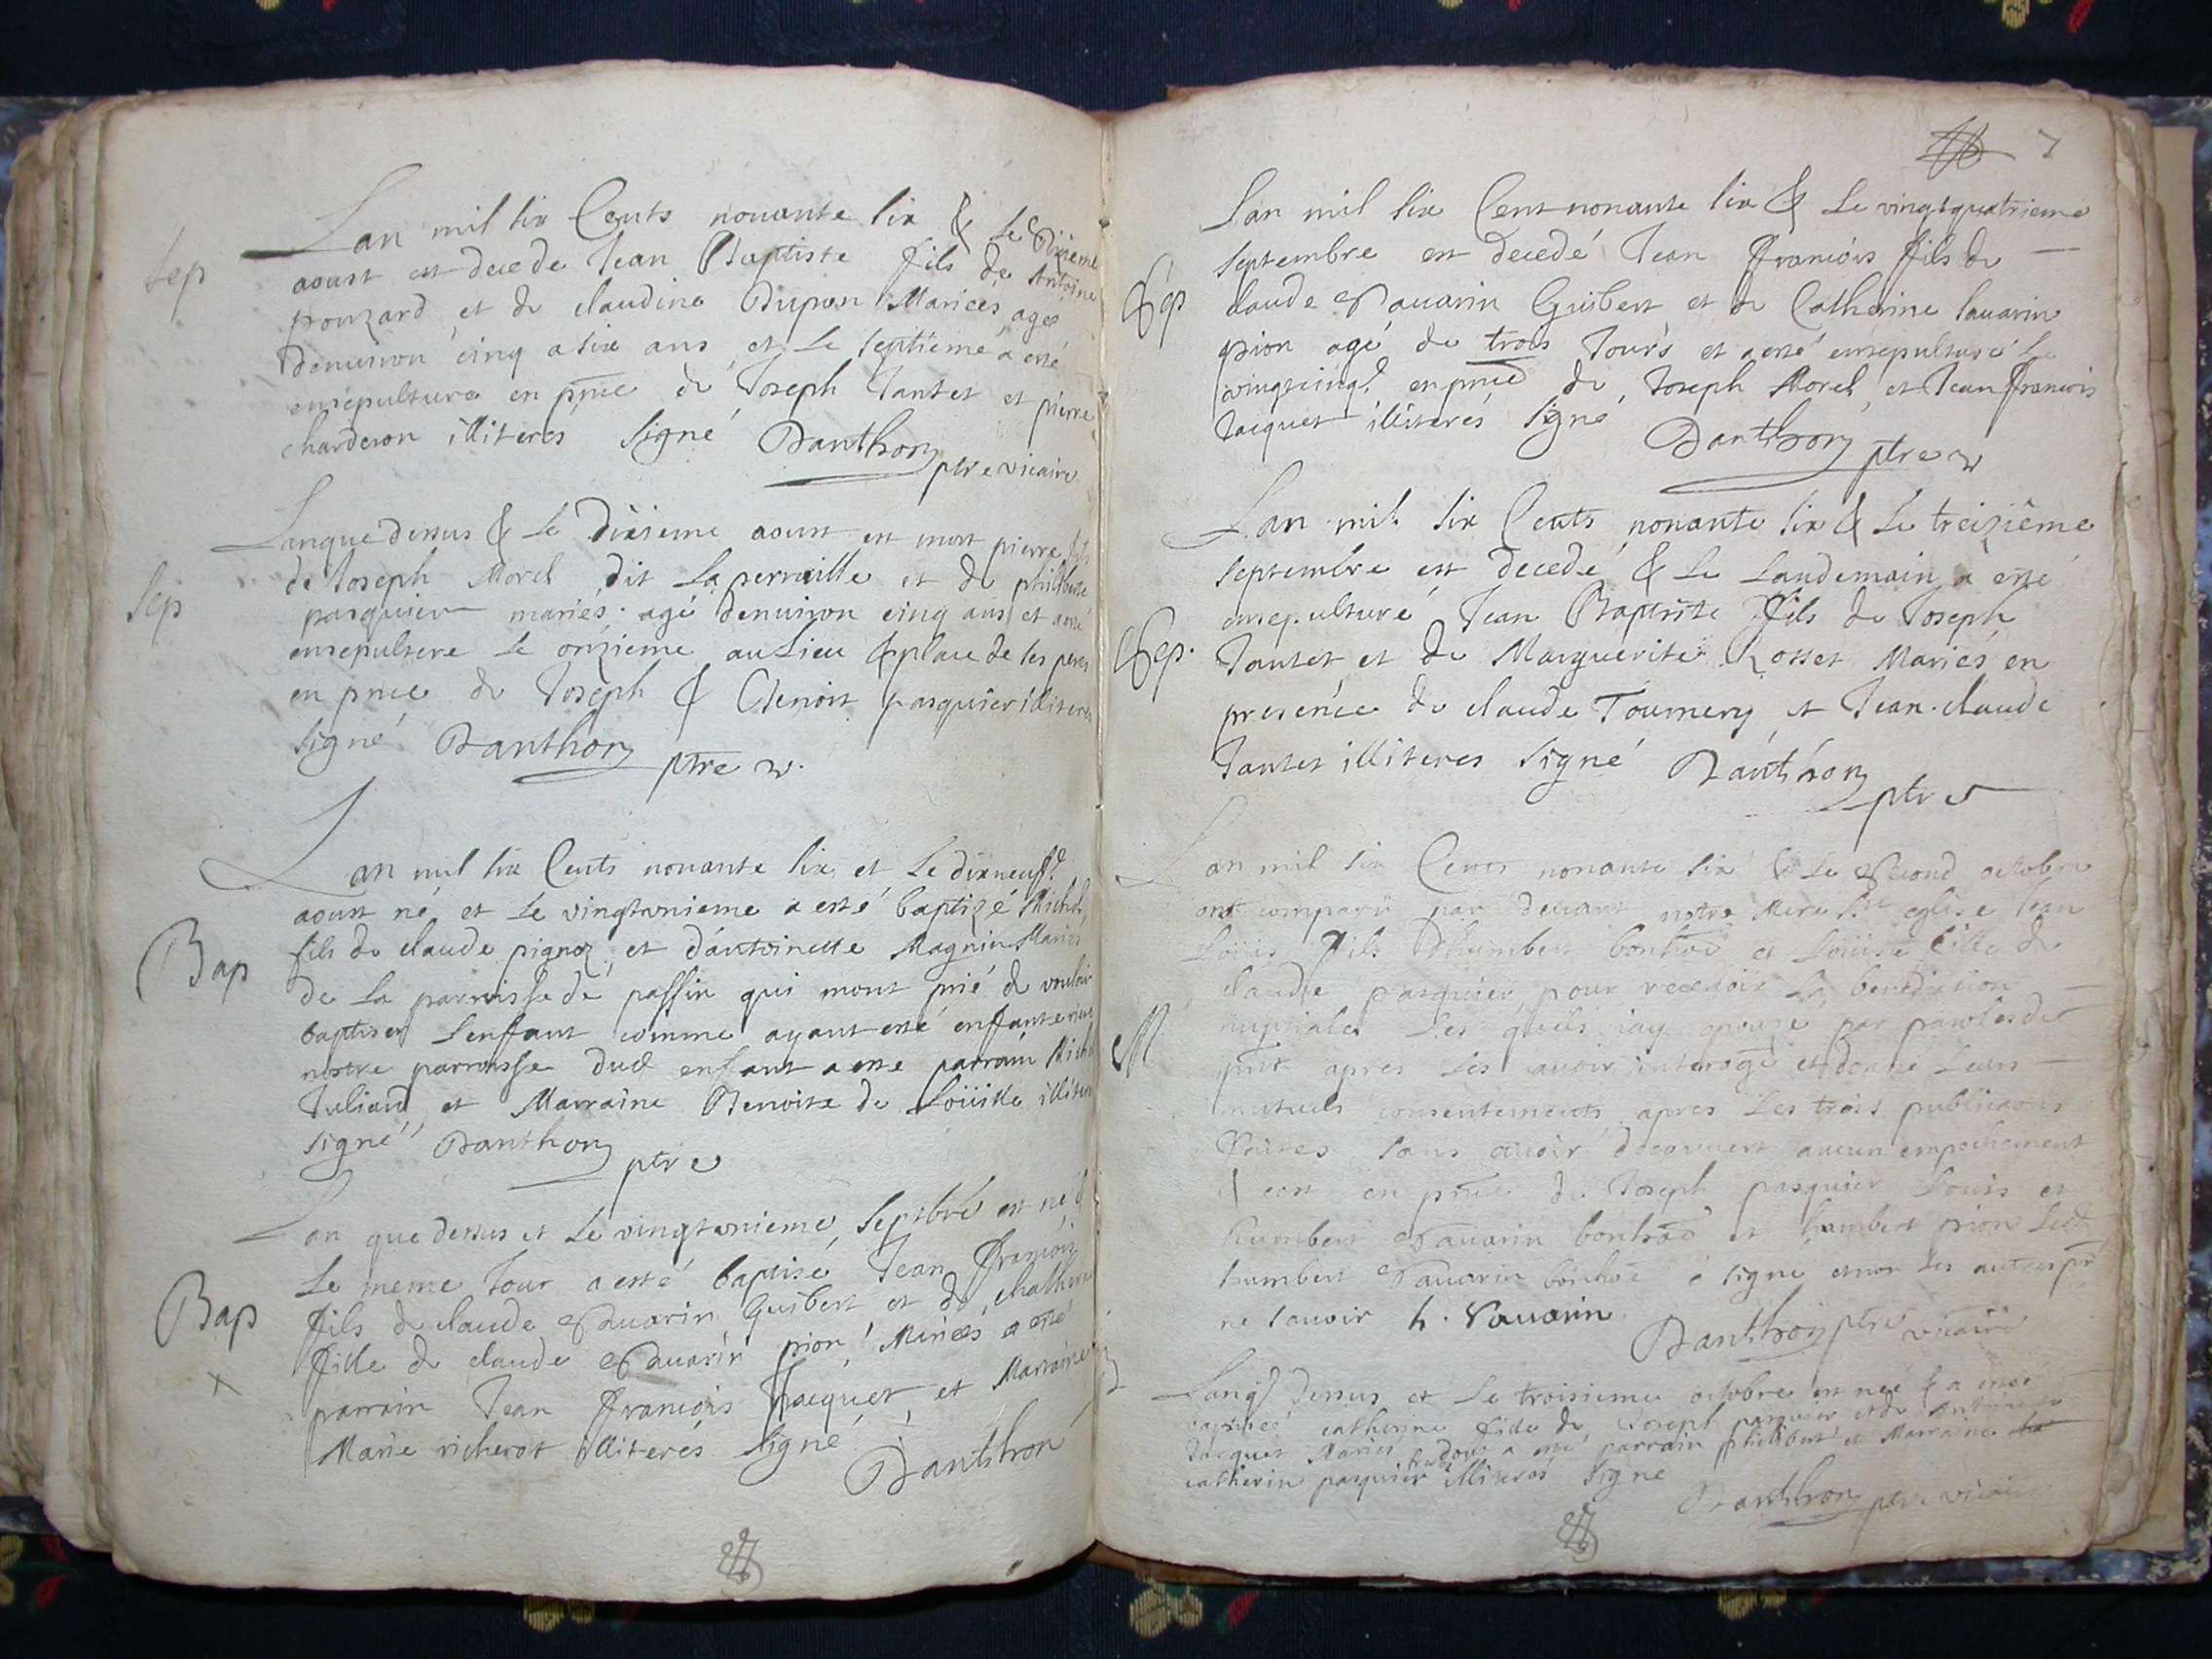 Sep
Lan mil six Cents nouante six & Le Dixieme
aoust est decede Jean Baptiste fils de Antoine
pouzard et de claudine Dupon Mariées agé
denuiron cinq a six ans et Le septieme a esté
ensepulturé en pnce de Joseph Jantet et pierre
charderon illiterés Signé Danthon ptre vicaire
Sep
Lanque dessus & Le Dixieme aoust est mort pierre fils
de Joseph Morel dit La perraille et de philiberte
pasquier mariés agé denuiron cinq ans et a esté
ensepulture Le onzieme au Lieu & place de ses peres
en pnce de Joseph & Benoist pasquier illiteres
signé Danthon ptre v.
Bap
Lan mil six Cents nouante six et Le dixneuf.
aoust né et Le vingtvnieme a esté baptizé Michel
fils de claude pignoz et d'antoinette Magnin Mariés
de La parroisse de passin qui mont prié de vouloir
baptiser Lenffant comme ayant esté enffanté rière
nostre parroisse dud enfant a esté parrain Michel
Juliand et Marraine Benoite de Loüille illiteres
signé Danthon ptre
Bap
x
Lan que dessus et Le vingtvnieme Septbre est né &
Le meme Jour a esté baptisé Jean François
fils de claude Sauarin Guibert et de chatherine
fille de claude Sauarin pion Mariées a esté
parrain Jean François Jacquet et Marraine
Marie richerot illiterés Signé
Danthon
7
Sep
Lan mil six Cent nonante six & Le vingtquatrieme
Septembre est decedé Jean François fils de
claude Sauarin Guibert et de Catherine sauarin
pion agé de trois Jours et a esté ensepulturé Le
vingtcinq. en pnce de Joseph Morel et Jean François
Jacquet illiterés signé
Danthon ptre v
Sep.
Lan mil six Cents nonante six & Le treizième
Septembre est decedé & Le Landemain a esté
ensepulturé Jean Baptiste fils de Joseph
Jantet et de Marguerite Rosset Mariés en
presence de claude Tournery et Jean claude
Jantet illiteres Signé Danthon
ptre v
M
Lan mil six Cents nonante six & Le Second octobre
ont comparu par deuant notre Mere Ste eglise Jean
Loüis fils Dhumbert bonhoe et Loüise fille de
claude pasquier pour receuoir La benediction
nuptiales Les quels iay epouzé par paroles de
pnt apres Les auoir interogé et donné Leurs
mutuels consentements apres Les trois publications
faites sans auoir decouuert aucun empechement
& cest en pnce de Joseph pasquier Louis et
humbert Sauarin bonhoe et humbert pion Led
humbert Sauarin bonhoe à signé et non Les autres pr
ne sauoir h. Sauarin
Danthon ptre vicaire
Lanq dessus et Le troisieme octobre est neé & a esté
baptiseé catherine fille de Joseph pasquier et de Antoinette
Jacquet Mariés a esté parrain philibert et Marraine
catherin pasquier illiterés signe
Danthon ptre vicaire